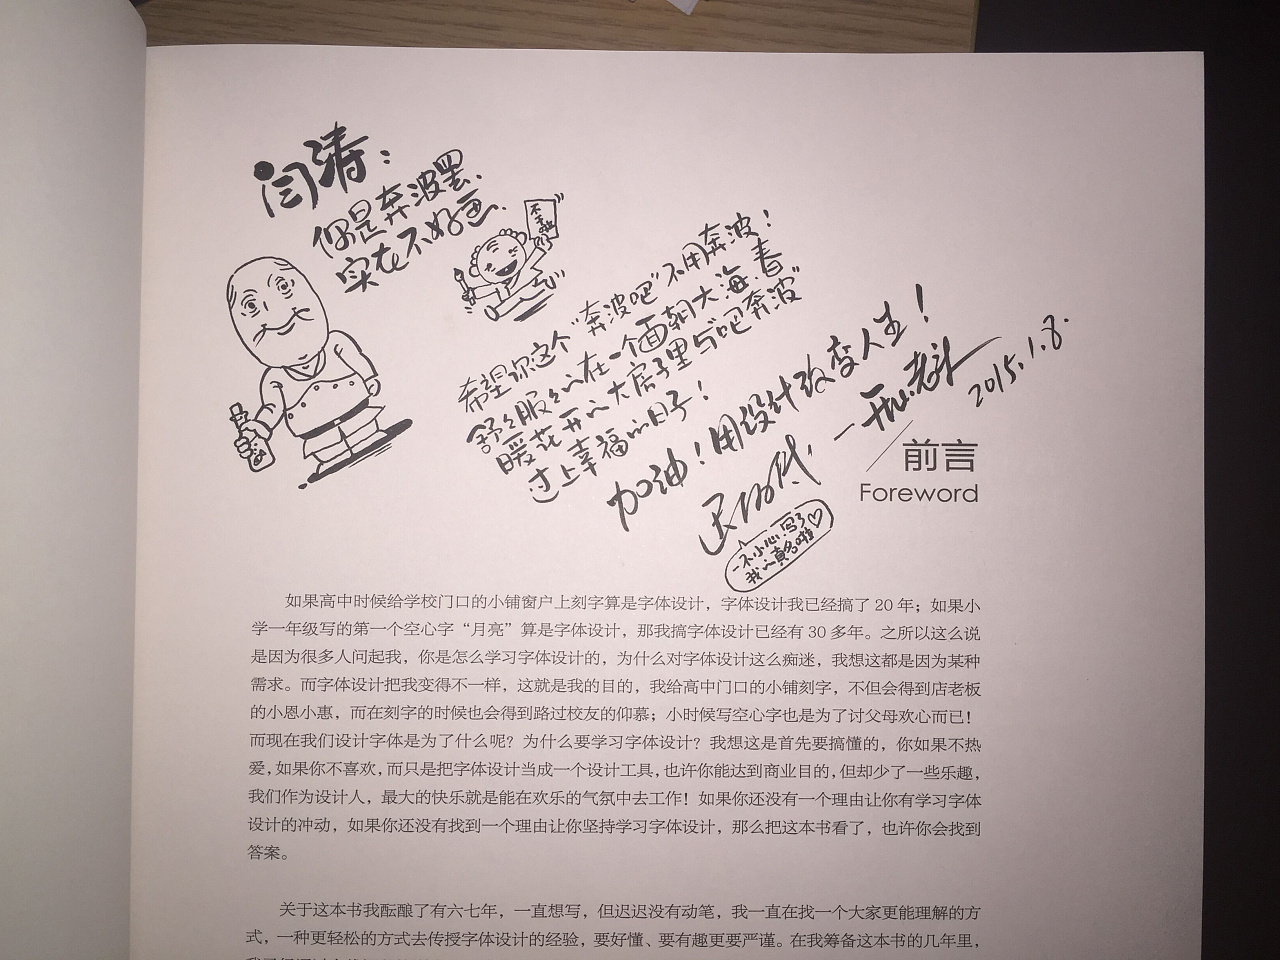 闫涛：
你是奔波罢、
实在不好画、
希望你这个“奔波吧”不用奔波！
舒舒服服的在一个面朝大海、春
暖花开的大房子里与“吧奔波”
过上幸福的日子！
加油！用设计改变人生！
2015.1.8.
一不小心写了
我的真名啦♡
前言
Foreword
如果高中时候给学校门口的小铺窗户上刻字算是字体设计，字体设计我已经搞了 20 年；如果小
学一年级写的第一个空心字“月亮”算是字体设计，那我搞字体设计已经有 30 多年。之所以这么说
是因为很多人问起我，你是怎么学习字体设计的，为什么对字体设计这么痴迷，我想这都是因为某种
需求。而字体设计把我变得不一样，这就是我的目的，我给高中门口的小铺刻字，不但会得到店老板
的小恩小惠，而在刻字的时候也会得到路过校友的仰慕；小时候写空心字也是为了讨父母欢心而已！
而现在我们设计字体是为了什么呢？为什么要学习字体设计？我想这是首先要搞懂的，你如果不热
爱，如果你不喜欢，而只是把字体设计当成一个设计工具，也许你能达到商业目的，但却少了一些乐趣，
我们作为设计人，最大的快乐就是能在欢乐的气氛中去工作！如果你还没有一个理由让你有学习字体
设计的冲动，如果你还没有找到一个理由让你坚持学习字体设计，那么把这本书看了，也许你会找到
答案。
关于这本书我酝酿了有六七年，一直想写，但迟迟没有动笔，我一直在找一个大家更能理解的方
式，一种更轻松的方式去传授字体设计的经验，要好懂、要有趣更要严谨。在我筹备这本书的几年里，